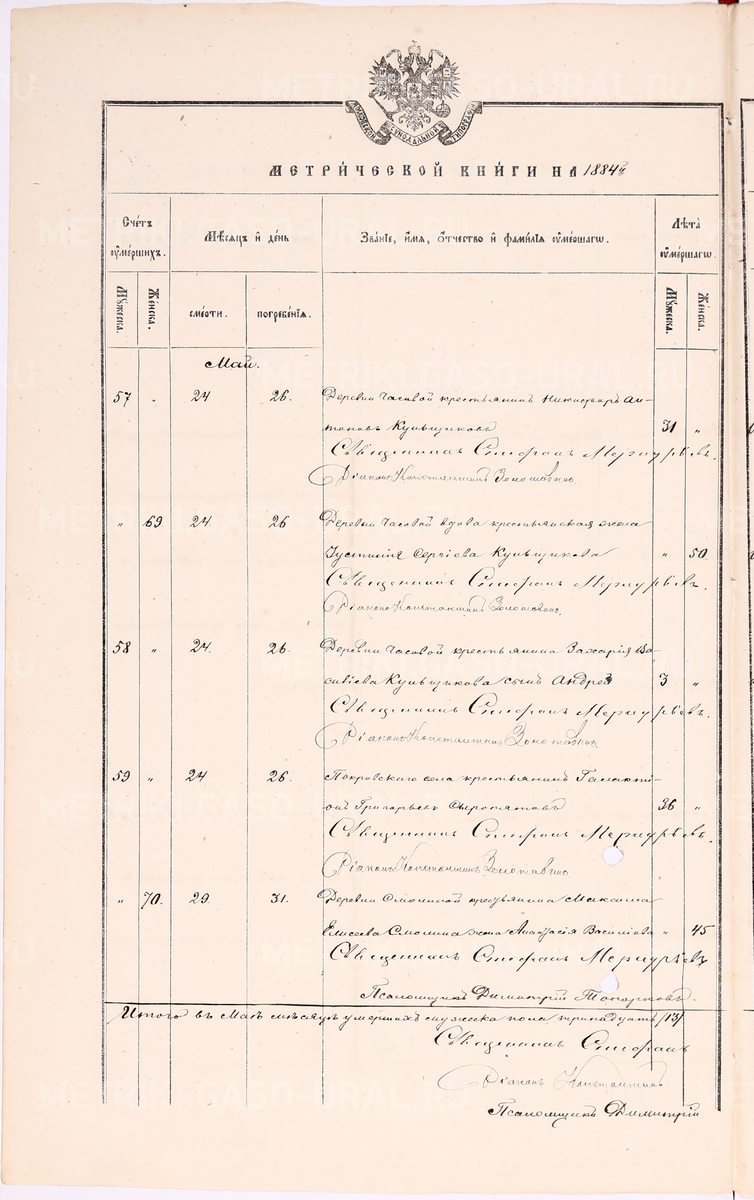 МОСКОВСКОЙ СѴНОДАЛЬНОЙ ТИПОГРАФІИ
МЕТРИ́ЧЕСКОЙ КНИ́ГИ НА 1884 й
Сче́тъ ᲂу҆ме́ршихъ.
Мꙋ́жеска.
Же́нска.
Мѣ́сяцъ и҆ де́нь
сме́рти.
погребе́нїя.
Зва́нїе, и҆́мя, ѻ҆́тчество и҆ фами́лїя ᲂу҆ме́ршагѡ.
Лѣ́та ᲂу҆ме́ршагѡ.
Мꙋ́жеска.
Же́нска.
Май.
57 " 24 26. Деревни Часовой крестьянинъ Никифоръ Ан-
тоновъ Кульщиковъ 31 "
Священникъ Стефанъ Меркурьевъ.
Діаконъ Константинъ Золотавинъ.
" 69 24. 26 Деревни Часовой вдова крестьянская жена
Іустинія Сергіева Кульщикова " 50.
Священникъ Стефанъ Меркурьевъ.
Діаконъ Константинъ Золотавинъ.
58 " 24. 26. Деревни Часовой крестьянина Захарія Ва-
силіева Кульщикова сынъ Андрей 3 "
Священникъ Стефанъ Меркурьевъ.
Діаконъ Константинъ Золотавинъ
59 " 24 26. Покровскаго села крестьянинъ Галакті-
онъ Григорьевъ Сыромятовъ 36 "
Священникъ Стефанъ Меркурьевъ.
Діаконъ Константинъ Золотавинъ
" 70. 29. 31. Деревни Смолиной крестьянина Максима
Елисеева Смолина жена Анастасія Василіева " 45
Священникъ Стефанъ Меркурьевъ
Псаломщикъ Димитрій Топорковъ.
Итого въ Маѣ мѣсяцѣ умершихъ мужеска пола тринадцать /13/
Священникъ Стефанъ
Діаконъ Константинъ
Псаломщикъ Димитрій